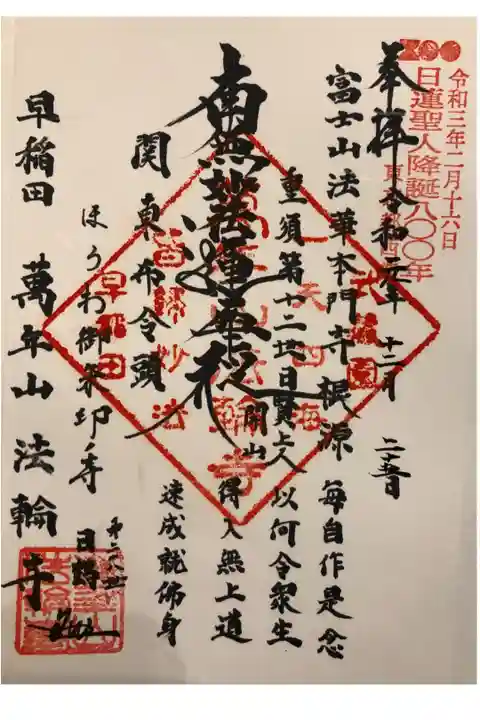 令和三年二月十六日
日蓮聖人降誕八〇〇年
奉拝 令和元年 十二月
富士山法華本門寺根源
毎自作是念
重須第十二世日賢上人
以何令衆生
開山
得入無上道
南無妙法蓮華経
関東布令頭
速成就佛身
ほうわ御朱印寺
早稲田 萬年山法輪寺
早稲田